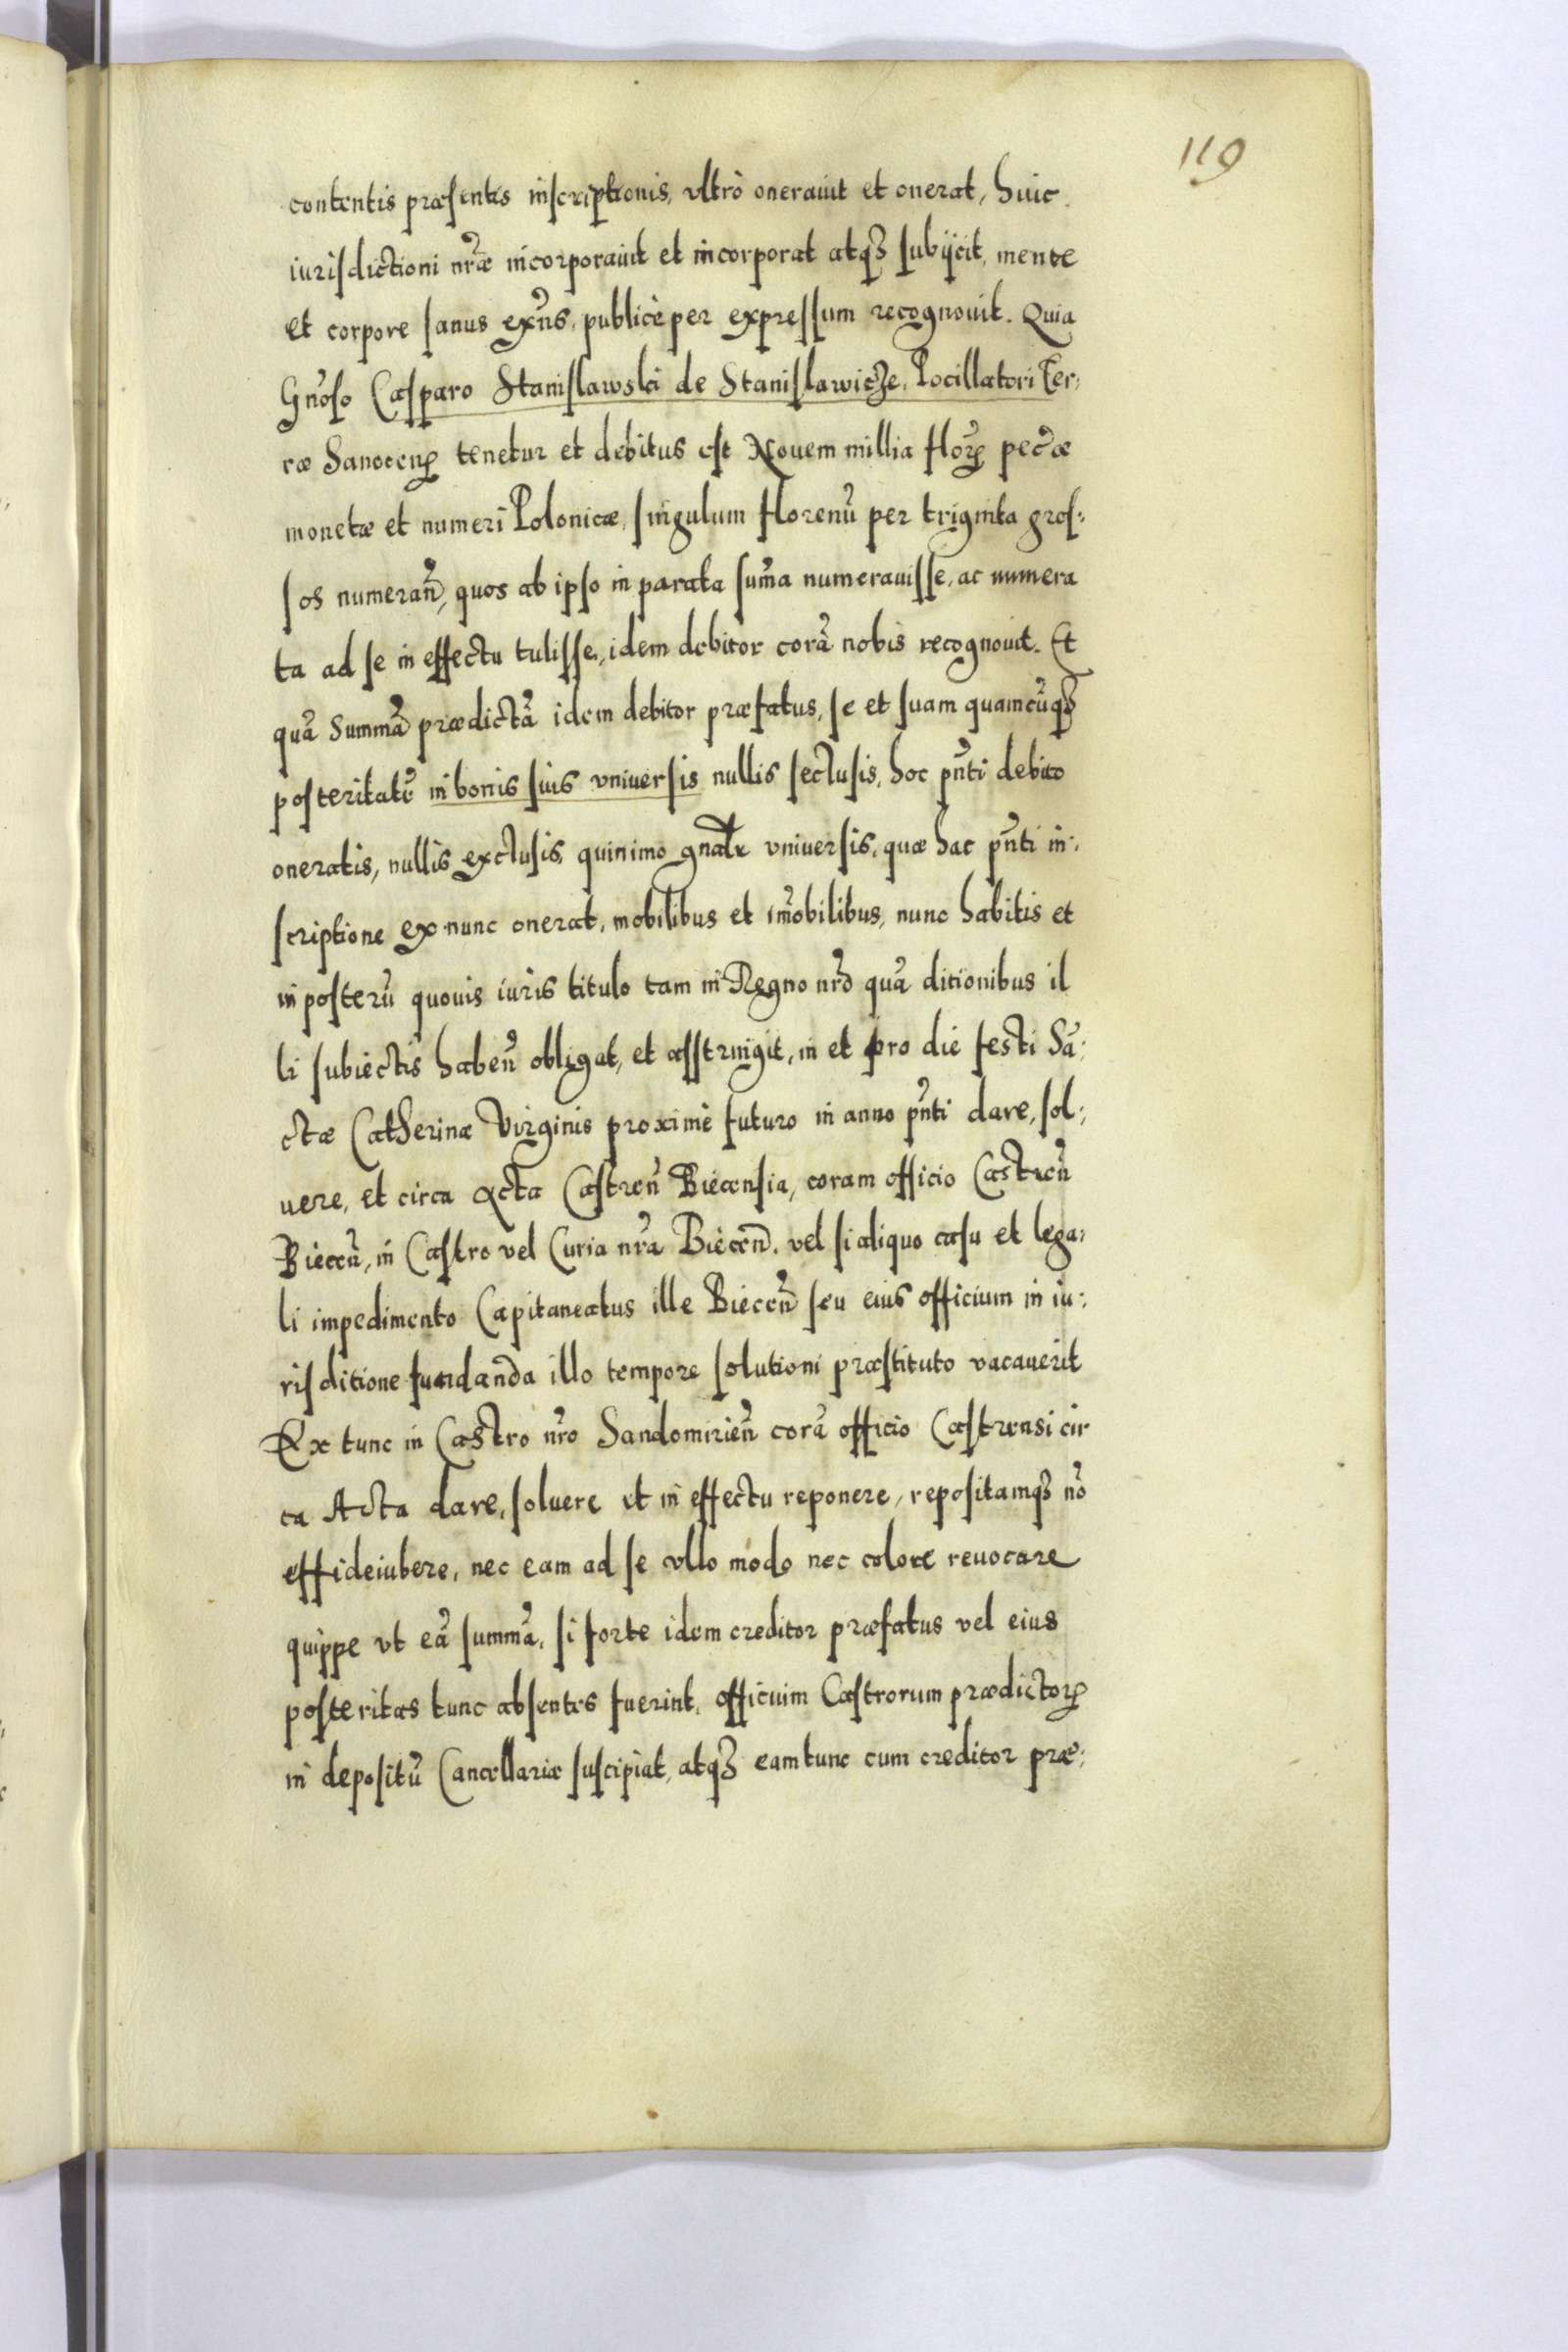 119
contentis præsentis inscriptionis, vltrò onerauit et onerat, huic
iurisdictioni nr̃æ incorporauit et incorporat atqꝫ subÿcit, mente
et corpore sanus exñs, publicè per expressum recognouit. Quia
Gñoso Casparo Stanislawski de Stanislawicze, Pocillatori Ter,
ræ Sanocenꝭ tenetur et debitus est Nouem millia florꝭ pec̃æ
monetæ et numeri Polonicæ, singulum florenũ per triginta gros:
sos numerañ, quos ab ipso in parata sum̃a numerauisse, ac numera
ta ad se in effectu tulisse, idem debitor corã nobis recognouit. Et
quã Summã prædictã idem debitor præfatus, se et suam quamcũqꝫ
posteritatẽ in bonis suis vniuersis nullis seclusis, hoc pñti debito
oneratis, nullis exclusis, quinimo gnãlr vniuersis, quæ hac pñti in:
scriptione ex nunc onerat, mobilibus et im̃obilibus, nunc habitis et
in posterũ quouis iuris titulo tam in Regno nr̃o quã ditionibus il
li subiectis habeñ obligat, et asstringit, in et pro die festi Sã:
ctæ Catherinæ Virginis proximè futuro in anno pñti dare, sol:
uere, et circa Acta Castreñ Biecensia, coram officio Castreñ
Bieceñ, in Castro vel Curia nr̃a Bieceñ. vel si aliquo casu et lega:
li impedimento Capitaneatus ille Bieceñ seu eius officium in iu:
risditione fundanda illo tempore solutioni præstituto vacauerit
Ex tunc in Castro nr̃o Sandomirieñ corã officio Castrensi cir
ca Acta dare, soluere et in effectu reponere, repositamqꝫ nõ
effideiubere, nec eam ad se vllo modo nec colore reuocare
quippe vt eã summã, si forte idem creditor præfatus vel eius
posteritas tunc absentes fuerint, officium Castrorum prædictorꝭ
in depositũ Cancellariæ suscipiat, atqꝫ eam tunc cum creditor præ: